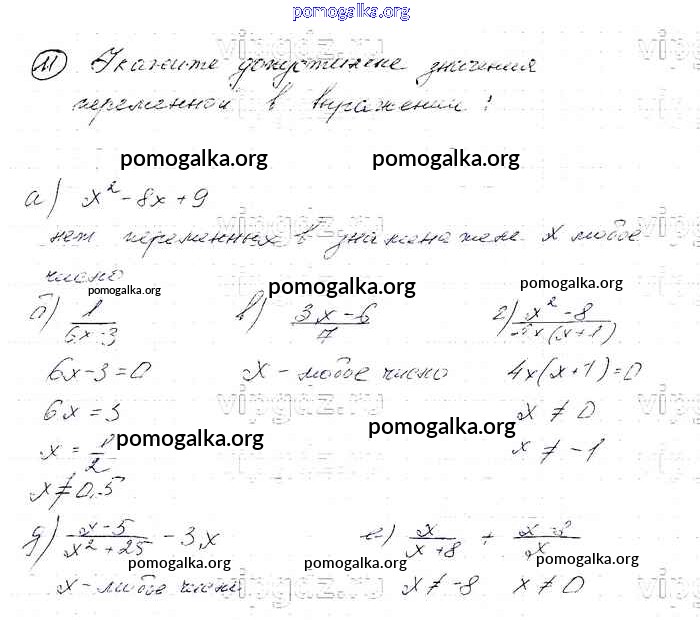 pomogalka.org
vipgdz.ru
11 Укажите допустимые значения
переменной в выражении:
pomogalka.org pomogalka.org
а) x² - 8x + 9
vipgdz.ru
нет переменных в знаменателе x любое
число
pomogalka.org pomogalka.org pomogalka.org
б) 1/(6x-3) в) (3x-6)/7 г) (x²-8)/(4x(x+1))
6x-3=0 x - любое число 4x(x+1)=0
6x = 3 x ≠ 0
vipgdz.ru
pomogalka.org pomogalka.org
x = 1/2 x ≠ -1
x ≠ 0,5
д) (x-5)/(x²+25) - 3x е) x/(x+8) +
pomogalka.org pomogalka.org pomogalka.org
x - любое число x ≠ -8 x ≠ 0
vipgdz.ru